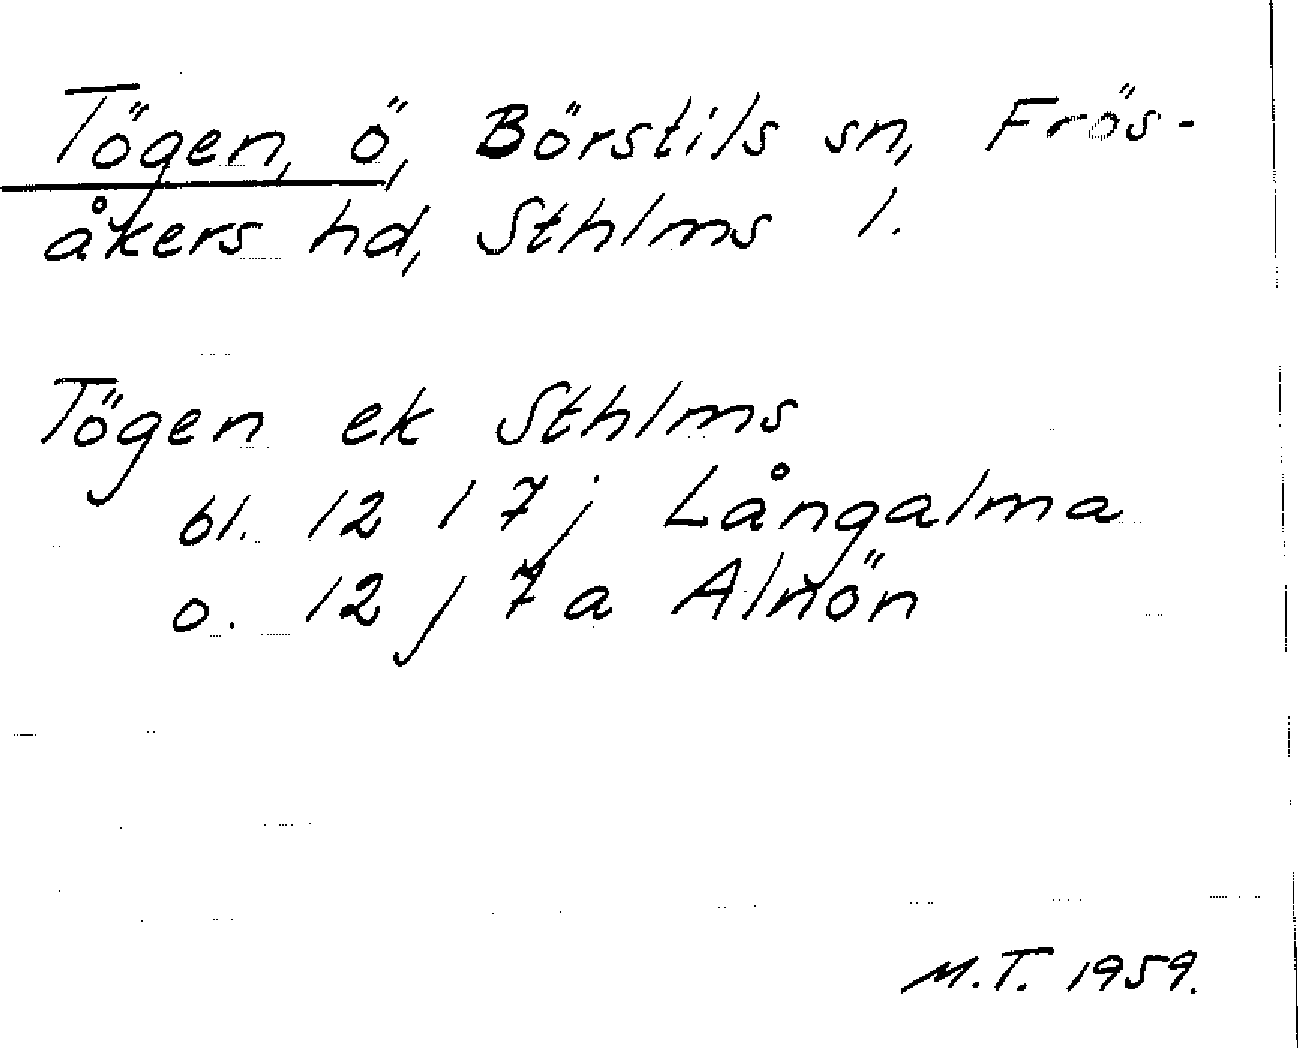 Tögen, ö, Börstils sn, Frös-
åkers hd, Sthlms l.
Tögen ek Sthlms
bl. 12 I 7j Långalma
o. 12 J 7a Alnön
M.T. 1959.